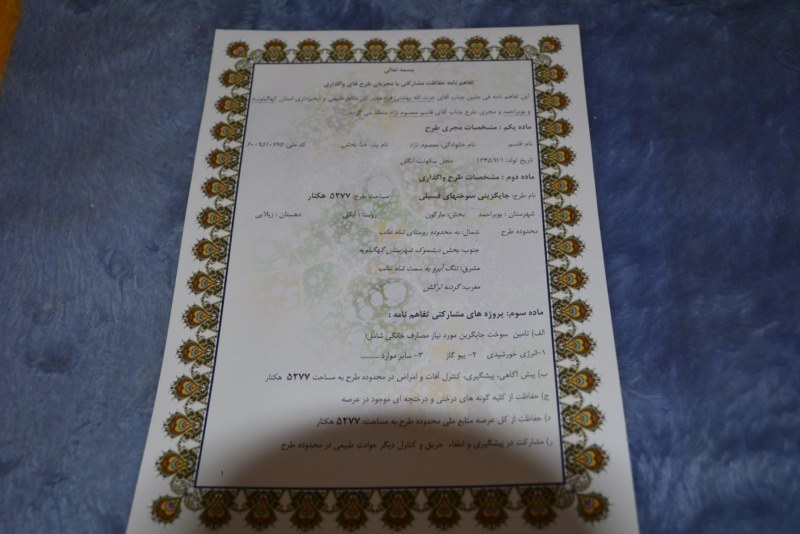 بسمه تعالی
تفاهم نامه حفاظت مشارکتی با مجریان طرح های واگذاری
این تفاهم نامه فی مابین جناب آقای عزت الله بهشتی فرد مدیر کل منابع طبیعی و آبخیزداری استان کهگیلویه
و بویراحمد و مجری طرح جناب آقای قاسم معصوم نژاد منعقد می گردد.
ماده یکم : مشخصات مجری طرح
نام: قاسم نام خانوادگی: معصوم نژاد نام پدر: خدا بخش کد ملی:
تاریخ تولد: ۱۳۳۵/۹/۱ محل سکونت: آبگلی
ماده دوم : مشخصات طرح واگذاری
نام طرح: جایگزینی سوختهای فسیلی مساحت طرح: ۵۲۷۷ هکتار
شهرستان : بویراحمد بخش: مارگون روستا : آبگلی دهستان : زیلایی
محدوده طرح شمال: به محدوده روستای شاه غالب
جنوب: بخش دیشموک شهرستان کهگیلویه
مشرق: تنگ آبرو به سمت شاه غالب
مغرب: گردنه
ماده سوم: پروژه های مشارکتی تفاهم نامه :
الف) تامین سوخت جایگزین مورد نیاز مصارف خانگی شامل:
۱-انرژی خورشیدی ۲- بیو گاز ۳- سایر موارد ........
ب) پیش آگاهی، پیشگیری، کنترل آفات و امراض در محدوده طرح به مساحت ۵۲۷۷ هکتار
ج) حفاظت از کلیه گونه های درختی و درختچه ای موجود در عرصه
د) حفاظت از کل عرصه منابع ملی محدوده طرح به مساحت: ۵۲۷۷ هکتار
ر) مشارکت در پیشگیری و اطفاء حریق و کنترل دیگر حوادث طبیعی در محدوده طرح
۱